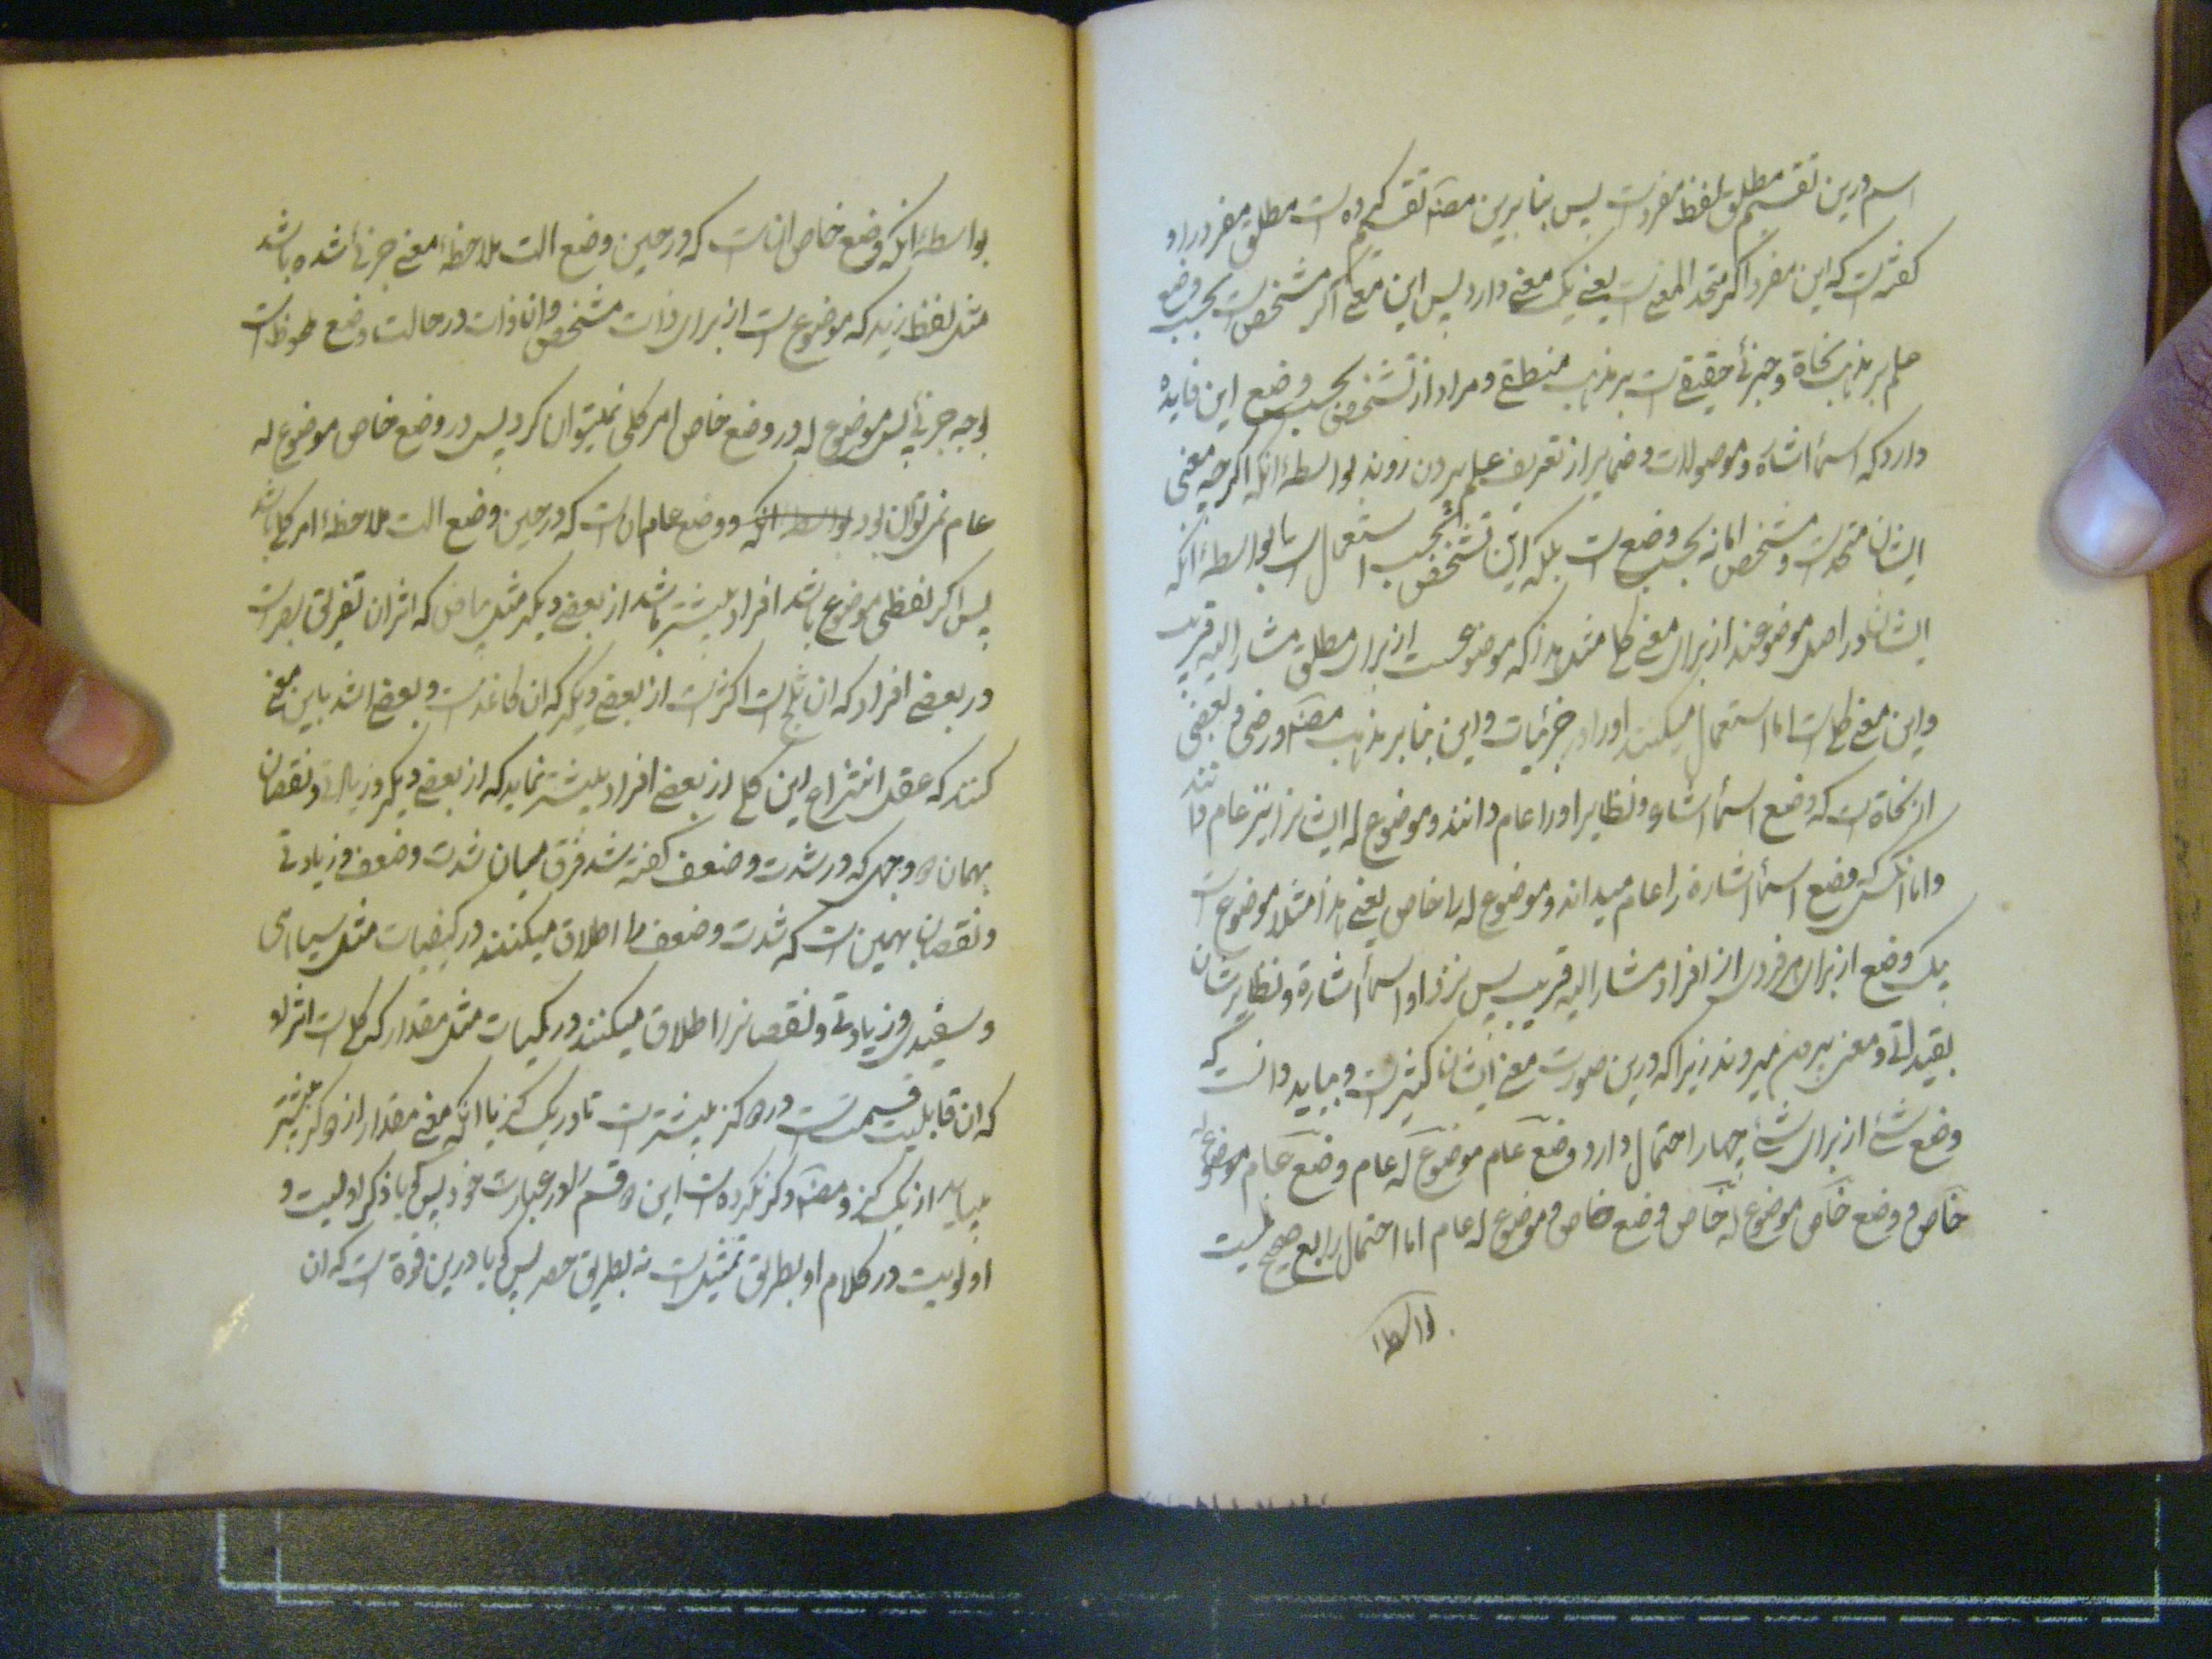 اسم درین تقسیم مطلق لفظ مفردست پس بنابرین مصنف تقسیم کرده است مطلق مفرد را و
کفته است که این مفرد اکر متحد المعنی است یعنی یک معنی دارد پس این معنی اکر مشخص است بحسب وضع
علم بر مذهب نحاة و جزئی حقیقی است بر مذهب منطقی و مراد از تشخص بحسب وضع این فایده
دارد که اسماء اشاره و موصولات و ضمایر از تعریف علم بیرون روند بواسطهٔ انکه اکرچه معنی
ایشان متحدست و مشخص اما نه بحسب وضع است بلکه این تشخص بحسب استعمال است بواسطهٔ انکه
ایشان در اصل موضوعند از برای معنی کلی مثل هذا که موضوعست از برای مطلق مشار الیه قریب
و این معنی کلی است اما استعمال میکنند او را در جزئیات و این بنابر مذهب مصنف و رضی و بعضی
از نحاة است که وضع اسماء اشاره و نظایر او را عام دانند و موضوع له ایشانرا نیز عام دانند
و اما انکس که وضع اسماء اشارة را عام میداند و موضوع له را خاص یعنی هذا مثلا موضوع است
بیک وضع از برای هر فردی از افراد مشار الیه قریب پس نزد او اسماء اشارة و نظایر ایشان
بقید اتحد معنی بیرون میروند زیرا که درین صورت معنی ایشان کثیرست و بباید دانست که
وضع شیٔ از برای شیٔ چهار احتمال دارد وضع عام موضوع له عام وضع عام موضوع له
خاص و وضع خاص موضوع له خاص وضع خاص و موضوع له عام اما احتمال رابع صحیح نیست
بواسطهٔ
بواسطهٔ انکه وضع خاص انست که در حین وضع الت ملاحظهٔ معنی جزئی شده باشد
مثل لفظ زید که موضوع است از برای ذات مشخص و ان ذات در حالت وضع ملحوظ است
بوجه جزئی پس موضوع له در وضع خاص امر کلی نمیتوان کرد پس در وضع خاص موضوع له
عام نمی تواند بود بواسطهٔ انکه و وضع عام ان است که در حین وضع الت ملاحظهٔ امر کلی باشد
پس اکر لفظی موضوع باشد افراد بیشتر باشد از بعضی دیکر مثل بیاض که اثر ان تفریق بصرست
در بعضی افراد که ان ثلج است اکثرست از بعضی دیکر که ان کاغذست و بعضی اشد باین معنی
کنند که عقل انتزاع این کلی از بعضی افراد بیشتر نماید که از بعضی دیکر و زیادتی و نقصان
بهمان دو وجهی که در شدت و ضعف کفته شد فرق میان شدت و ضعف و زیادتی
و نقصان همین است که شدت و ضعف را اطلاق میکنند در کیفیات مثل سیاهی
و سفیدی و زیادتی و نقصانرا اطلاق میکنند در کمیات مثل مقدار که کلی است اثر او
که ان قابلیت قسمت است در دو کز بیشترست تا در یک کز یا انکه معنی مقدار از دو کز بیشتر
بیاید از یک کز و مصنف ذکر نکرده است این دو قسم را در عبارت خود پس کویا ذکر اولیت و
اولویت در کلام او بطریق تمثیل است نه بطریق حصر پس کویا درین قوة است که ان